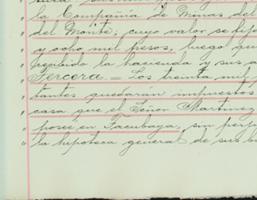 la Compañia de Minas del
del Monte, cuyo valor se fijó
y ocho mil pesos, luego que
la hacienda y sus a
Tercera = Los treinta mil
tantes quedarán impuestos
casa que el Señor Martinez
posee en Tacubaya, sin perj
la hipoteca general de sus bi